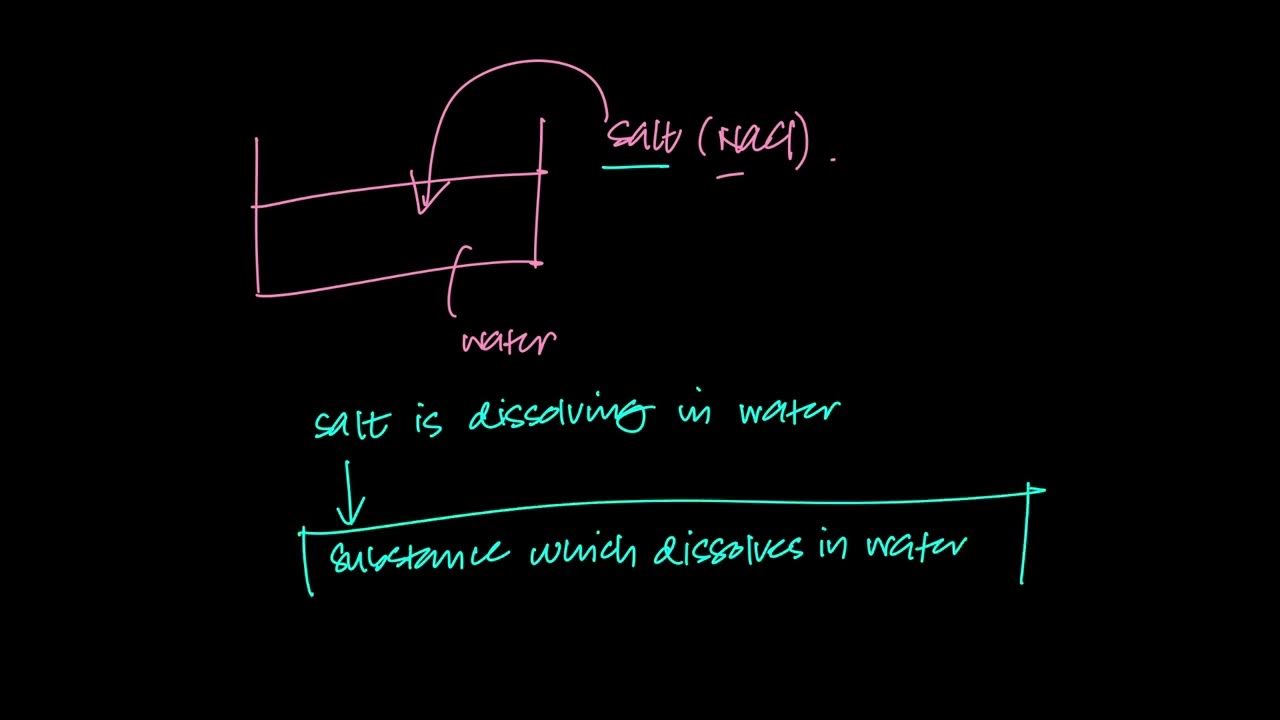 salt (NaCl).
water
salt is dissolving in water
substance which dissolves in water